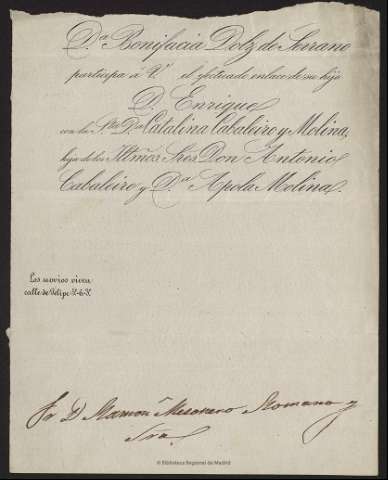 D.ª Bonifacia Dolz de Serrano
participa á V. el efectuado enlace de su hijo
D. Enrique
con la Sta. D.ª Catalina Cabaleiro y Molina,
hija de los Iltmos. Sres. Don Antonio
Cabaleiro y D.ª Apola Molina.
Los novios viven
calle de Felipe
Sr D Ramon Mesonero Romano y
Sra.
© Biblioteca Regional de Madrid